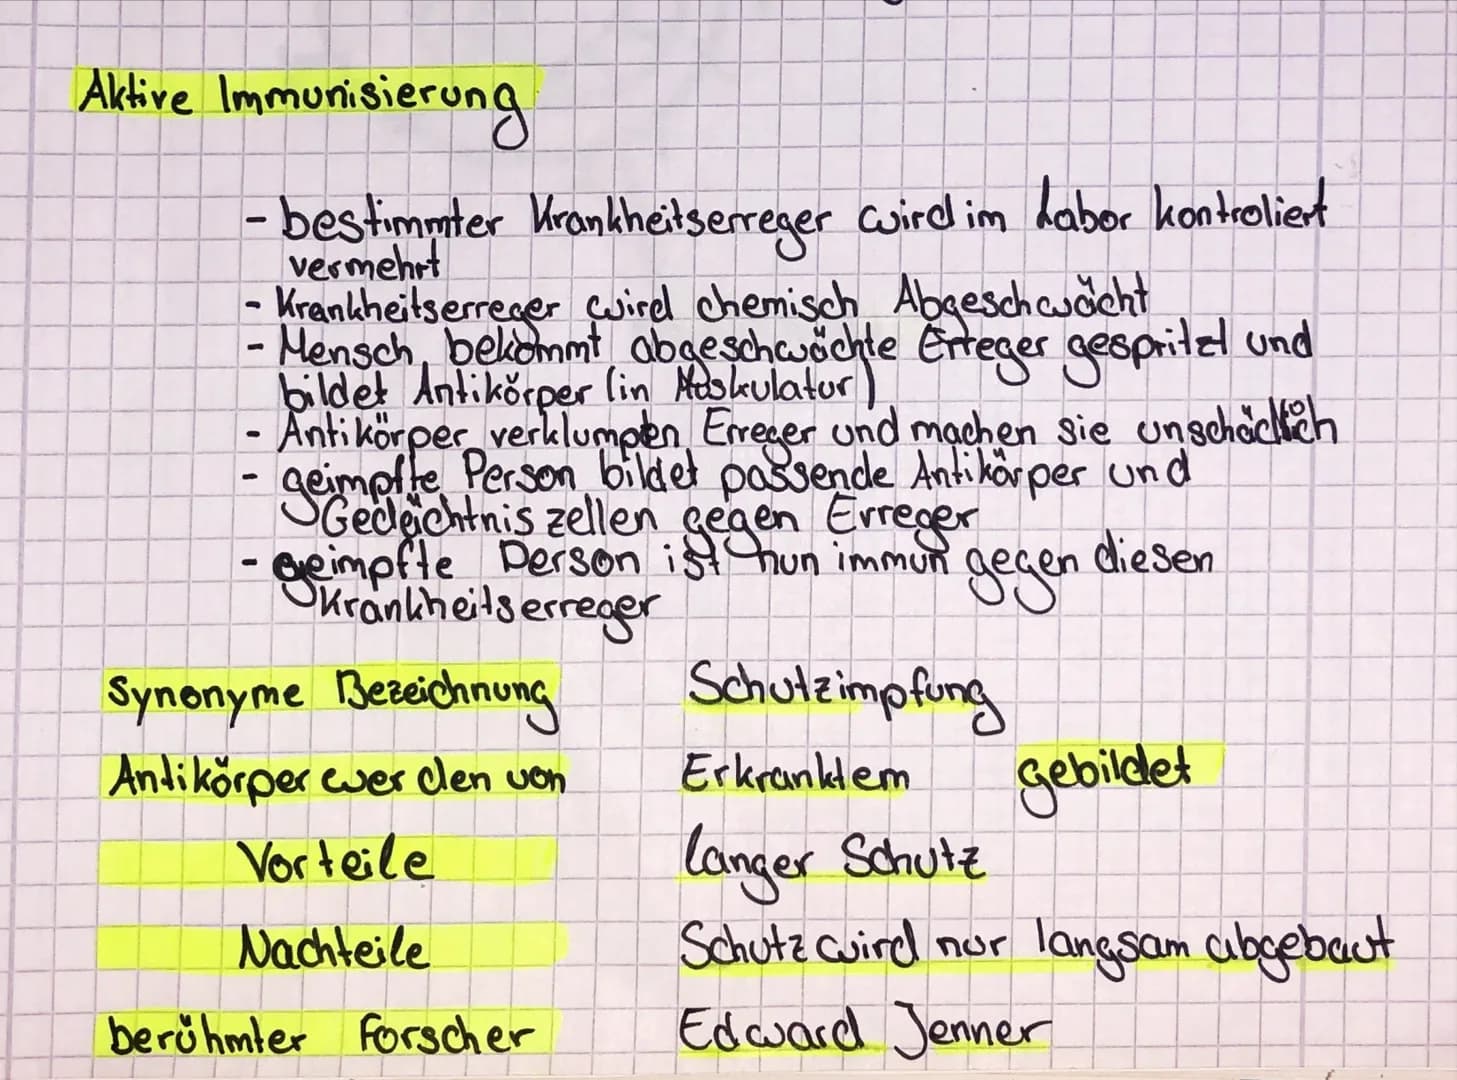 Aktive Immunisierung
- bestimmter Krankheitserreger wird im Labor kontroliert
vermehrt
- Krankheitserreger wird chemisch Abgeschwächt
- Mensch bekommt abgeschwächte Erreger gespritzt und
bildet Antikörper (in Muskulatur)
- Antikörper verklumpen Erreger und machen sie unschädlich
- geimpfte Person bildet passende Antikörper und
Gedächtniszellen gegen Erreger
- geimpfte Person ist nun immun gegen diesen
Krankheitserreger
Synonyme Bezeichnung Schutzimpfung
Antikörper werden von Erkranktem gebildet
Vorteile langer Schutz
Nachteile Schutz wird nur langsam abgebaut
berühmter Forscher Edward Jenner